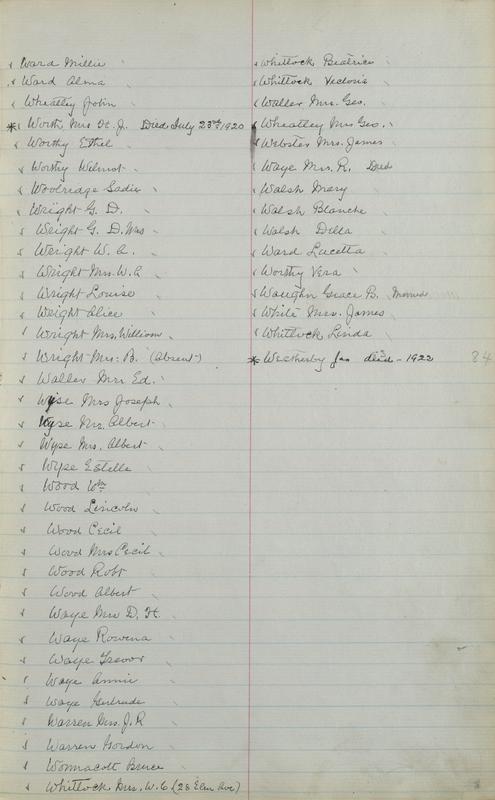 Ward Millie
Ward Alma
Wheatley John
* Worth Mrs H. J. Died, July 23rd, 1920
Worthy Ethel
Worthy Wilmot
Woolridge Sadie
Wright G. D.
Wright G. D. Mrs
Wright W. A.
Wright Mrs. W. A
Wright Louise
Wright Alice
Wright Mrs. William
Wright Mrs. B. (Absent)
Waller Mrs Ed.
Wyse Mrs Joseph
Wyse Mr. Albert
Wyse Mrs. Albert
Wyse Estella
Wood Wm
Wood Lincoln
Wood Cecil
Wood Mrs Cecil
Wood Robt
Wood Albert
Waye Mrs D. H.
Waye Rowena
Waye Trevor
Waye Annie
Waye Gertrude
Warren Mrs. J. R
Warren Gordon
Wonnacott Bruce
Whitlock Mrs. W. C (28 Elm Ave)
Whitlock Beatrice
Whitlock Victoria
Waller Mrs. Geo.
Wheatley Mrs Geo.
Webster Mrs. James
Waye Mrs. R. Died
Walsh Mary
Walsh Blanche
Walsh Della
Ward Lucetta
Worthy Vera
Waughn Grace B.
White Mrs. James
Whitlock Linda
* Weatherby Jas died - 1922 84